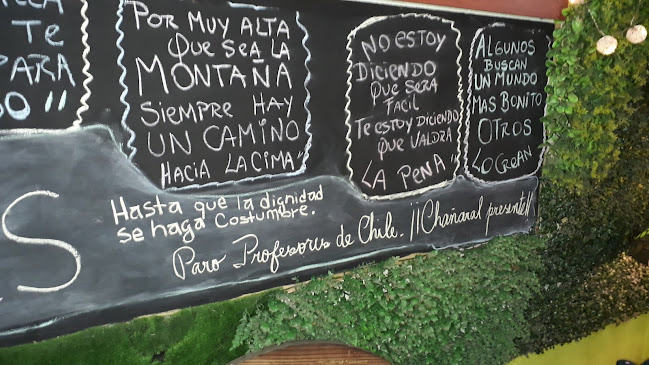 TE
PARA
POR MUY ALTA
QUE SEA LA
MONTAÑA
SIEMPRE HAY
UN CAMINO
HACIA LA CIMA"
NO ESTOY
DICIENDO
QUE SERA
FACIL
TE ESTOY DICIENDO
QUE VALDRA
LA PENA"
ALGUNOS
BUSCAN
UN MUNDO
MAS BONITO
OTROS
LO CREAN
S
Hasta que la dignidad
se haga Costumbre.
Paro Profesores de Chile. ¡¡Chañaral presente!!